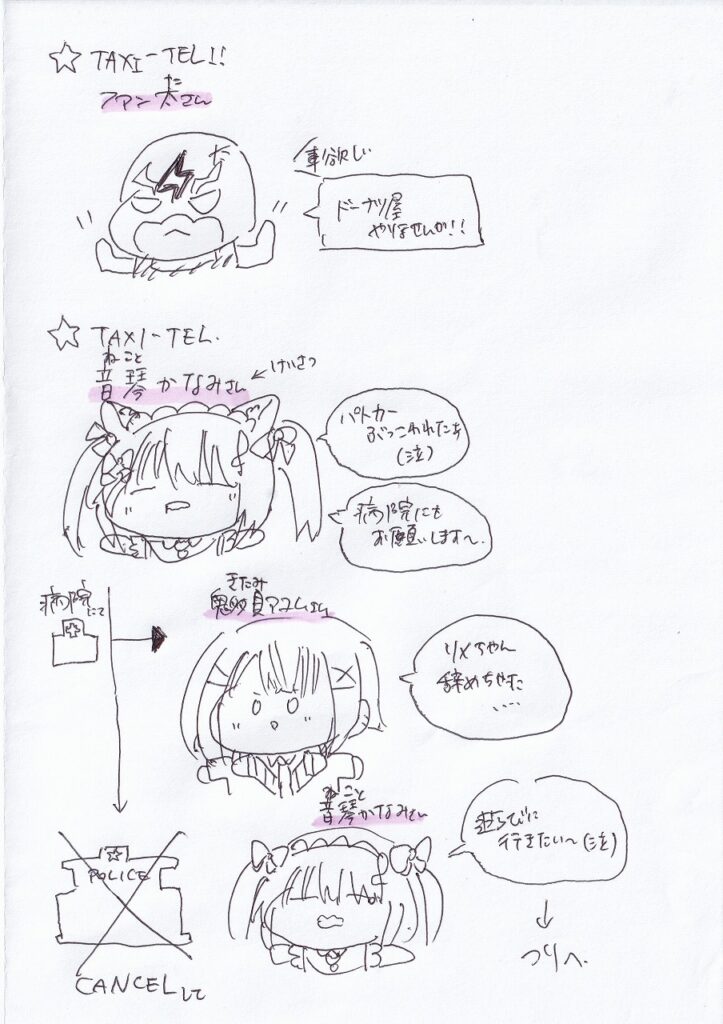 ☆ TAXI-TEL!!
た
ファン太さん
車欲しい
ドーナツ屋
やりませんか!!
☆ TAXI-TEL.
ねこと
音琴かなみさん
←けいさつ
パトカー
ぶっこわれたぁ
(泣)
病院にを
お願いします〜.
病院にて
きたみ
鬼多見アユムさん
リメちゃん
辞めちゃた
....
ねこと
音琴かなみさん
遊びに
行きたい〜(泣)
↓
つりへ.
POLICE
CANCELして